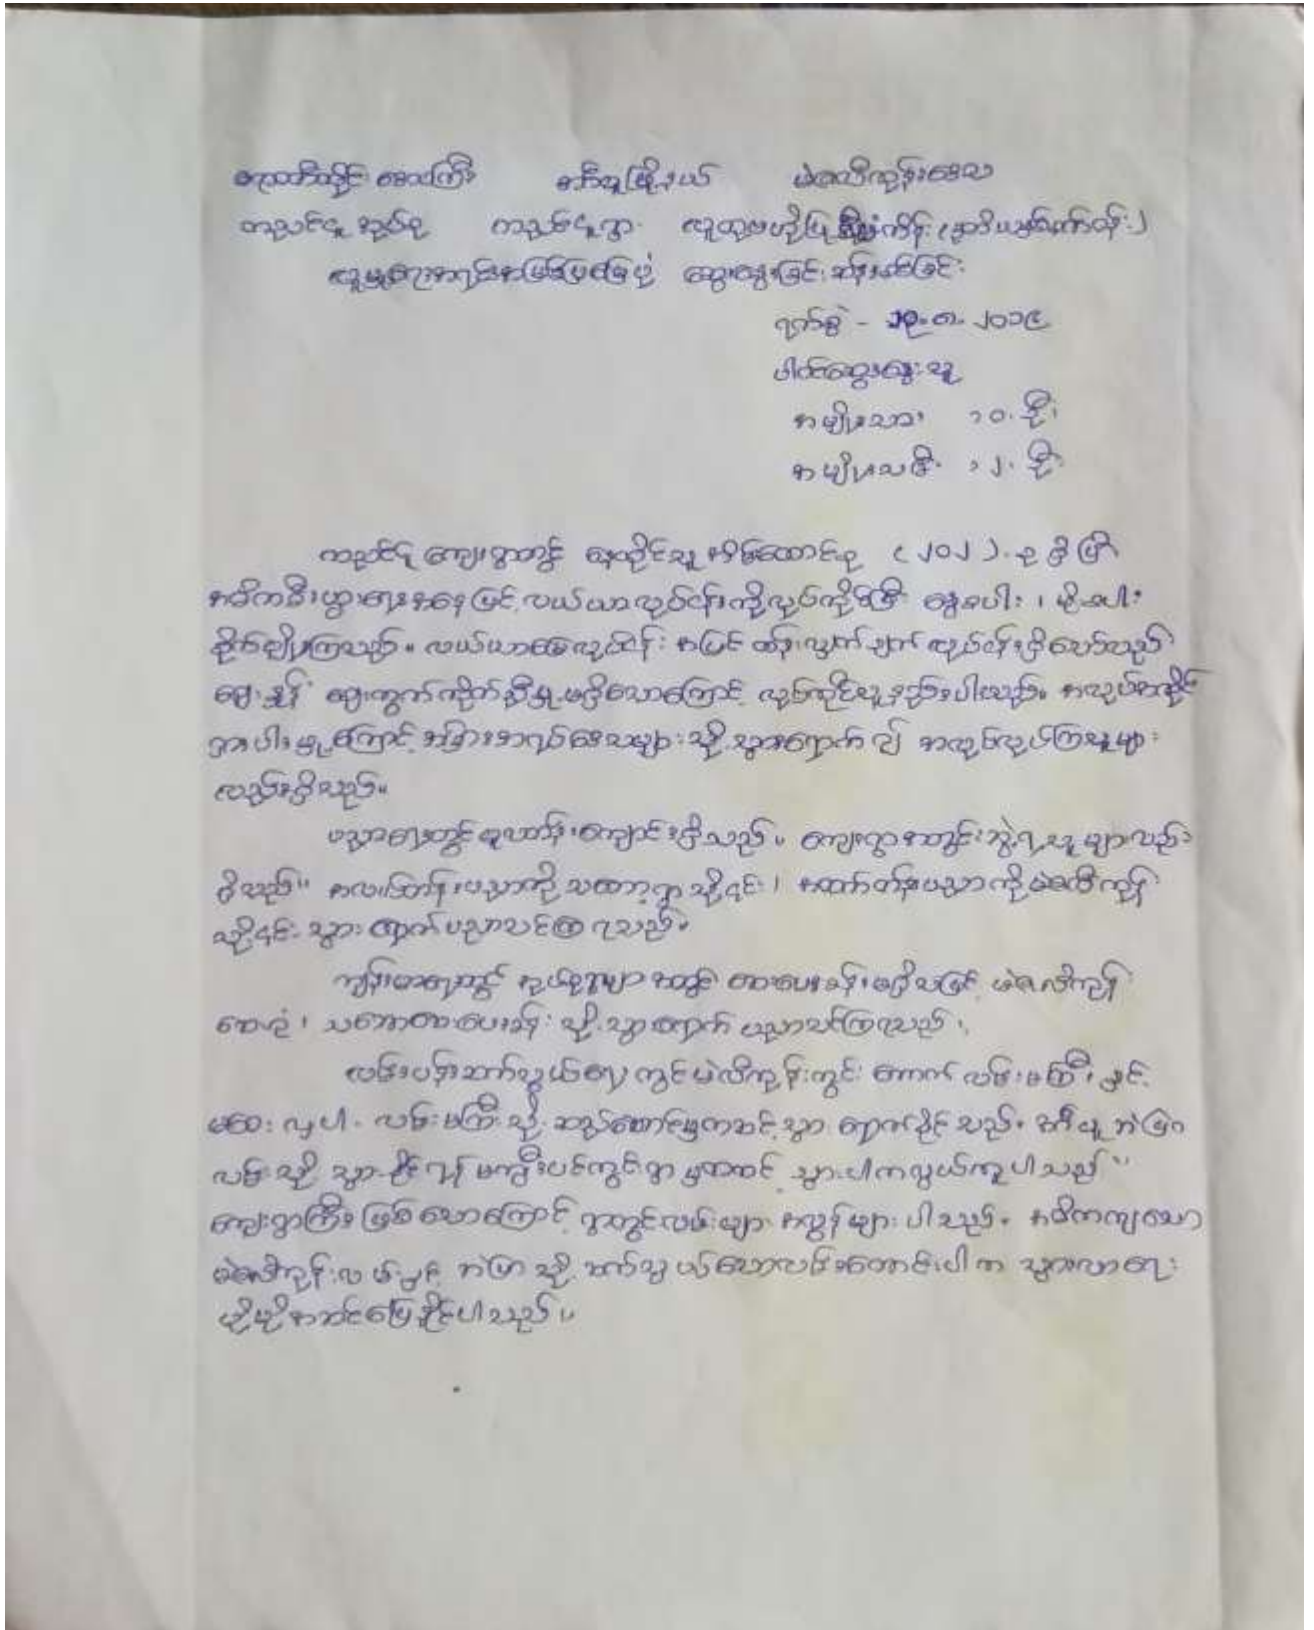 ဧရာဝတီတိုင်းဒေသကြီး အင်္ဂပူမြို့နယ် မဲဇလီကုန်းဒေသ
ကညင်ငူအုပ်စု ကညင်ငူရွာ လူထုဗဟိုပြုစီမံကိန်း (ဒုတိယ
လူမှုရေးအရင်းအမြစ်ပြမြေပုံ ဆွေးနွေးခြင်းဆန်းစစ်ခြင်း
ရက်စွဲ - ၂၀၁၉
ပါဝင်ဆွေးနွေးသူ
အမျိုးသား ၁၀ ဦး
အမျိုးသမီး ၁၂ ဦး
ကညင်ငူကျေးရွာတွင် နေထိုင်သူအိမ်ထောင်စု (၂၀၂) စုရှိပြီး
အဓိကစီးပွားရေးအနေဖြင့် လယ်ယာလုပ်ငန်းကိုလုပ်ကိုင်ပြီး နွေစပါး၊ မိုးစပါး
စိုက်ပျိုးကြသည်။ လယ်ယာမြေလုပ်ငန်း အပြင် လုပ်ငန်းရှိသော်လည်း
ဈေးနှုန်း ဈေးကွက်ကိုက်ညီမှုမရှိသောကြောင့် လုပ်ကိုင်သူနည်းပါးသည်။ အလုပ်အကိုင်
ရှားပါးမှုကြောင့် အခြားအရပ်ဒေသများသို့ သွားရောက်၍ အလုပ်လုပ်ကြသူများ
လည်းရှိသည်။
ပညာရေးတွင်မူလတန်းကျောင်းရှိသည်။ ကျေးရွာအတွင်းဘွဲ့ရသူများလည်း
ရှိသည်။ အလယ်တန်းပညာကို ရွာသို့၎င်း၊ အထက်တန်းပညာကိုမဲဇလီကုန်း
သို့၎င်း သွားရောက်ပညာသင်ကြရသည်။
ကျန်းမာရေးတွင် အတွင် ဆေးပေးခန်းမရှိသဖြင့် မဲဇလီကုန်း
ဆေးရုံ၊ ဆေးပေးခန်း သို့သွားရောက် ပညာသင်ကြရသည်။
လမ်းပန်းဆက်သွယ်ရေးတွင် လမ်းမကြီးနှင့်
မဝေးလှပါ။ လမ်းမကြီးသို့ သွားရောက်နိုင်သည်။
လမ်းသို့ သွားနိုင်ရန် မကျီးပင်ကွင်းရွာမှတဆင့် သွားပါကလွယ်ကူပါသည်။
ကျေးရွာကြီးဖြစ်သောကြောင့် ရွာတွင်လမ်းများ အလွန်များပါသည်။ အဓိကကျသော
မဲဇလီကုန်းလမ်းနှင့် သို့ ဆက်သွယ်သောလမ်းကောင်းပါက သွားလာရေး
ပိုမိုအဆင်ပြေနိုင်ပါသည်။